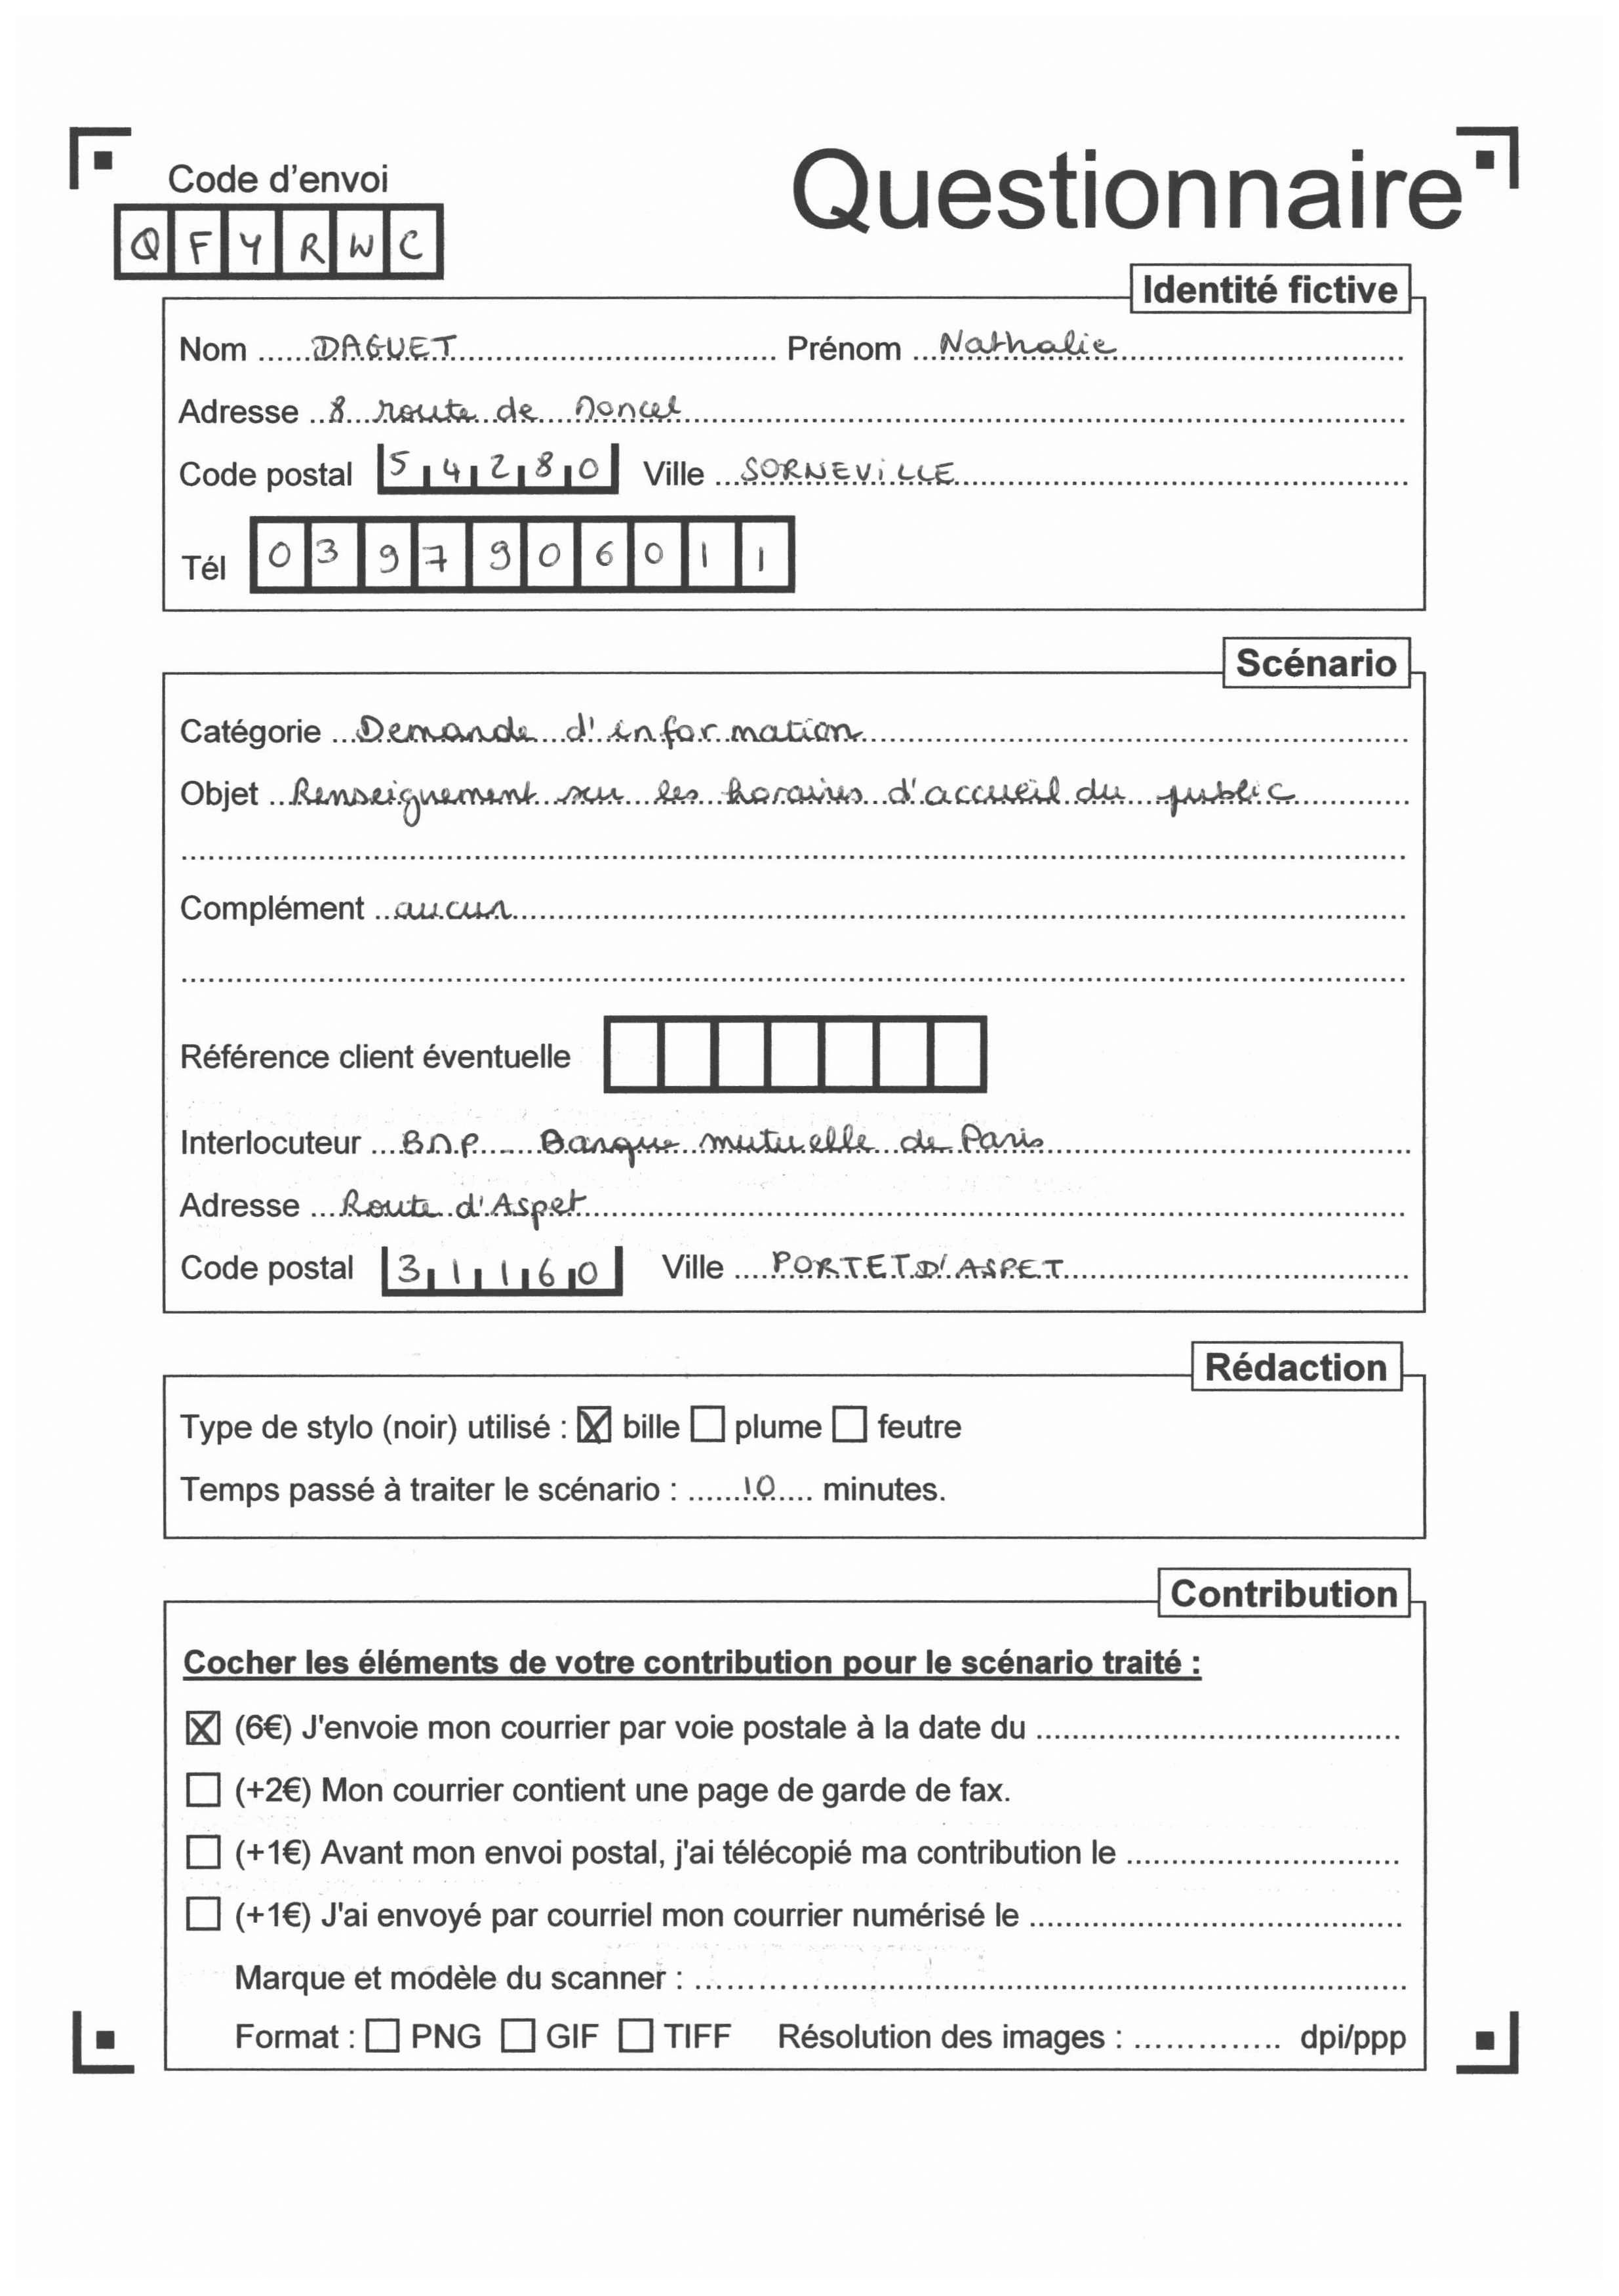 Code d'envoi
QFYRWC
Questionnaire
Identité fictive
Nom ......DAGUET.............. Prénom ...Nathalie..............
Adresse ..8 route de Moncel..............
Code postal 54280 Ville ...SORNEVILLE..............
Tél 0397906011
Scénario
Catégorie ...Demande d'information..............
Objet ..Renseignement sur les horaires d'accueil du public..............
Complément ..aucun..............
Référence client éventuelle
Interlocuteur ...BMP Banque mutuelle de Paris..............
Adresse ...Route d'Aspet..............
Code postal 31160 Ville ....PORTET D'ASPET..............
Rédaction
Type de stylo (noir) utilisé : ☒ bille ☐ plume ☐ feutre
Temps passé à traiter le scénario : ......10.... minutes.
Contribution
Cocher les éléments de votre contribution pour le scénario traité :
☒ (6€) J'envoie mon courrier par voie postale à la date du ..............
☐ (+2€) Mon courrier contient une page de garde de fax.
☐ (+1€) Avant mon envoi postal, j'ai télécopié ma contribution le ..............
☐ (+1€) J'ai envoyé par courriel mon courrier numérisé le ..............
Marque et modèle du scanner : ..............
Format : ☐ PNG ☐ GIF ☐ TIFF Résolution des images : .............. dpi/ppp